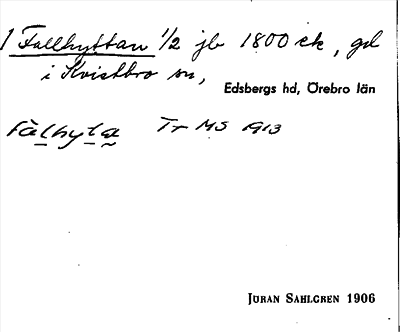 1 Fallhyttan 1/2 jb 1800 ck, gd
i Kvistbro sn,
Edsbergs hd, Örebro län
Fàlhyta Tr MS 1913
JÖRAN SAHLGREN 1906